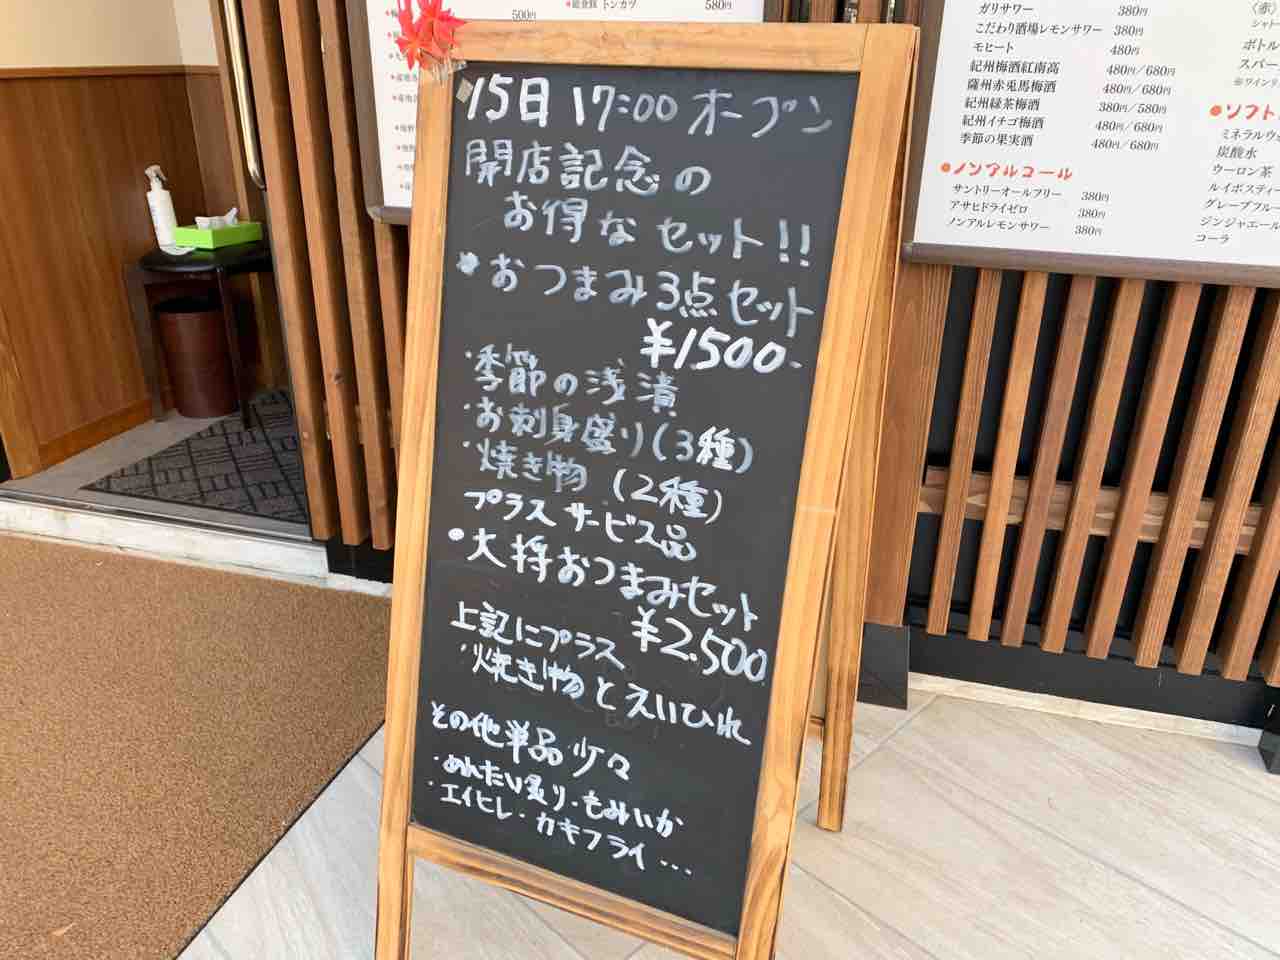 15日 17:00 オープン
開店記念の
お得なセット!!
おつまみ3点セット
¥1500-
・季節の浅漬
・お刺身盛り(3種)
・焼き物 (2種)
プラスサービス品
・大将おつまみセット
¥2.500
上記にプラス
・焼き物とえいひれ
その他単品少々
・めんたい炙り・もみいか
・エイヒレ・カキフライ…
500円
トンカツ 580円
ガリサワー 380円
こだわり酒場レモンサワー 380円
モヒート 480円
紀州梅酒紅南高 480円/680円
薩州赤兎馬梅酒 480円/680円
紀州緑茶梅酒 380円/580円
紀州イチゴ梅酒 480円/680円
季節の果実酒 480円/680円
●ノンアルコール
サントリーオールフリー 380円
アサヒドライゼロ 380円
ノンアルレモンサワー 380円
(赤)
シャトー
ボトル
スパー
●ソフト
ミネラルウ
炭酸水
ウーロン茶
ルイボスティ
グレープフルー
ジンジャエール
コーラ